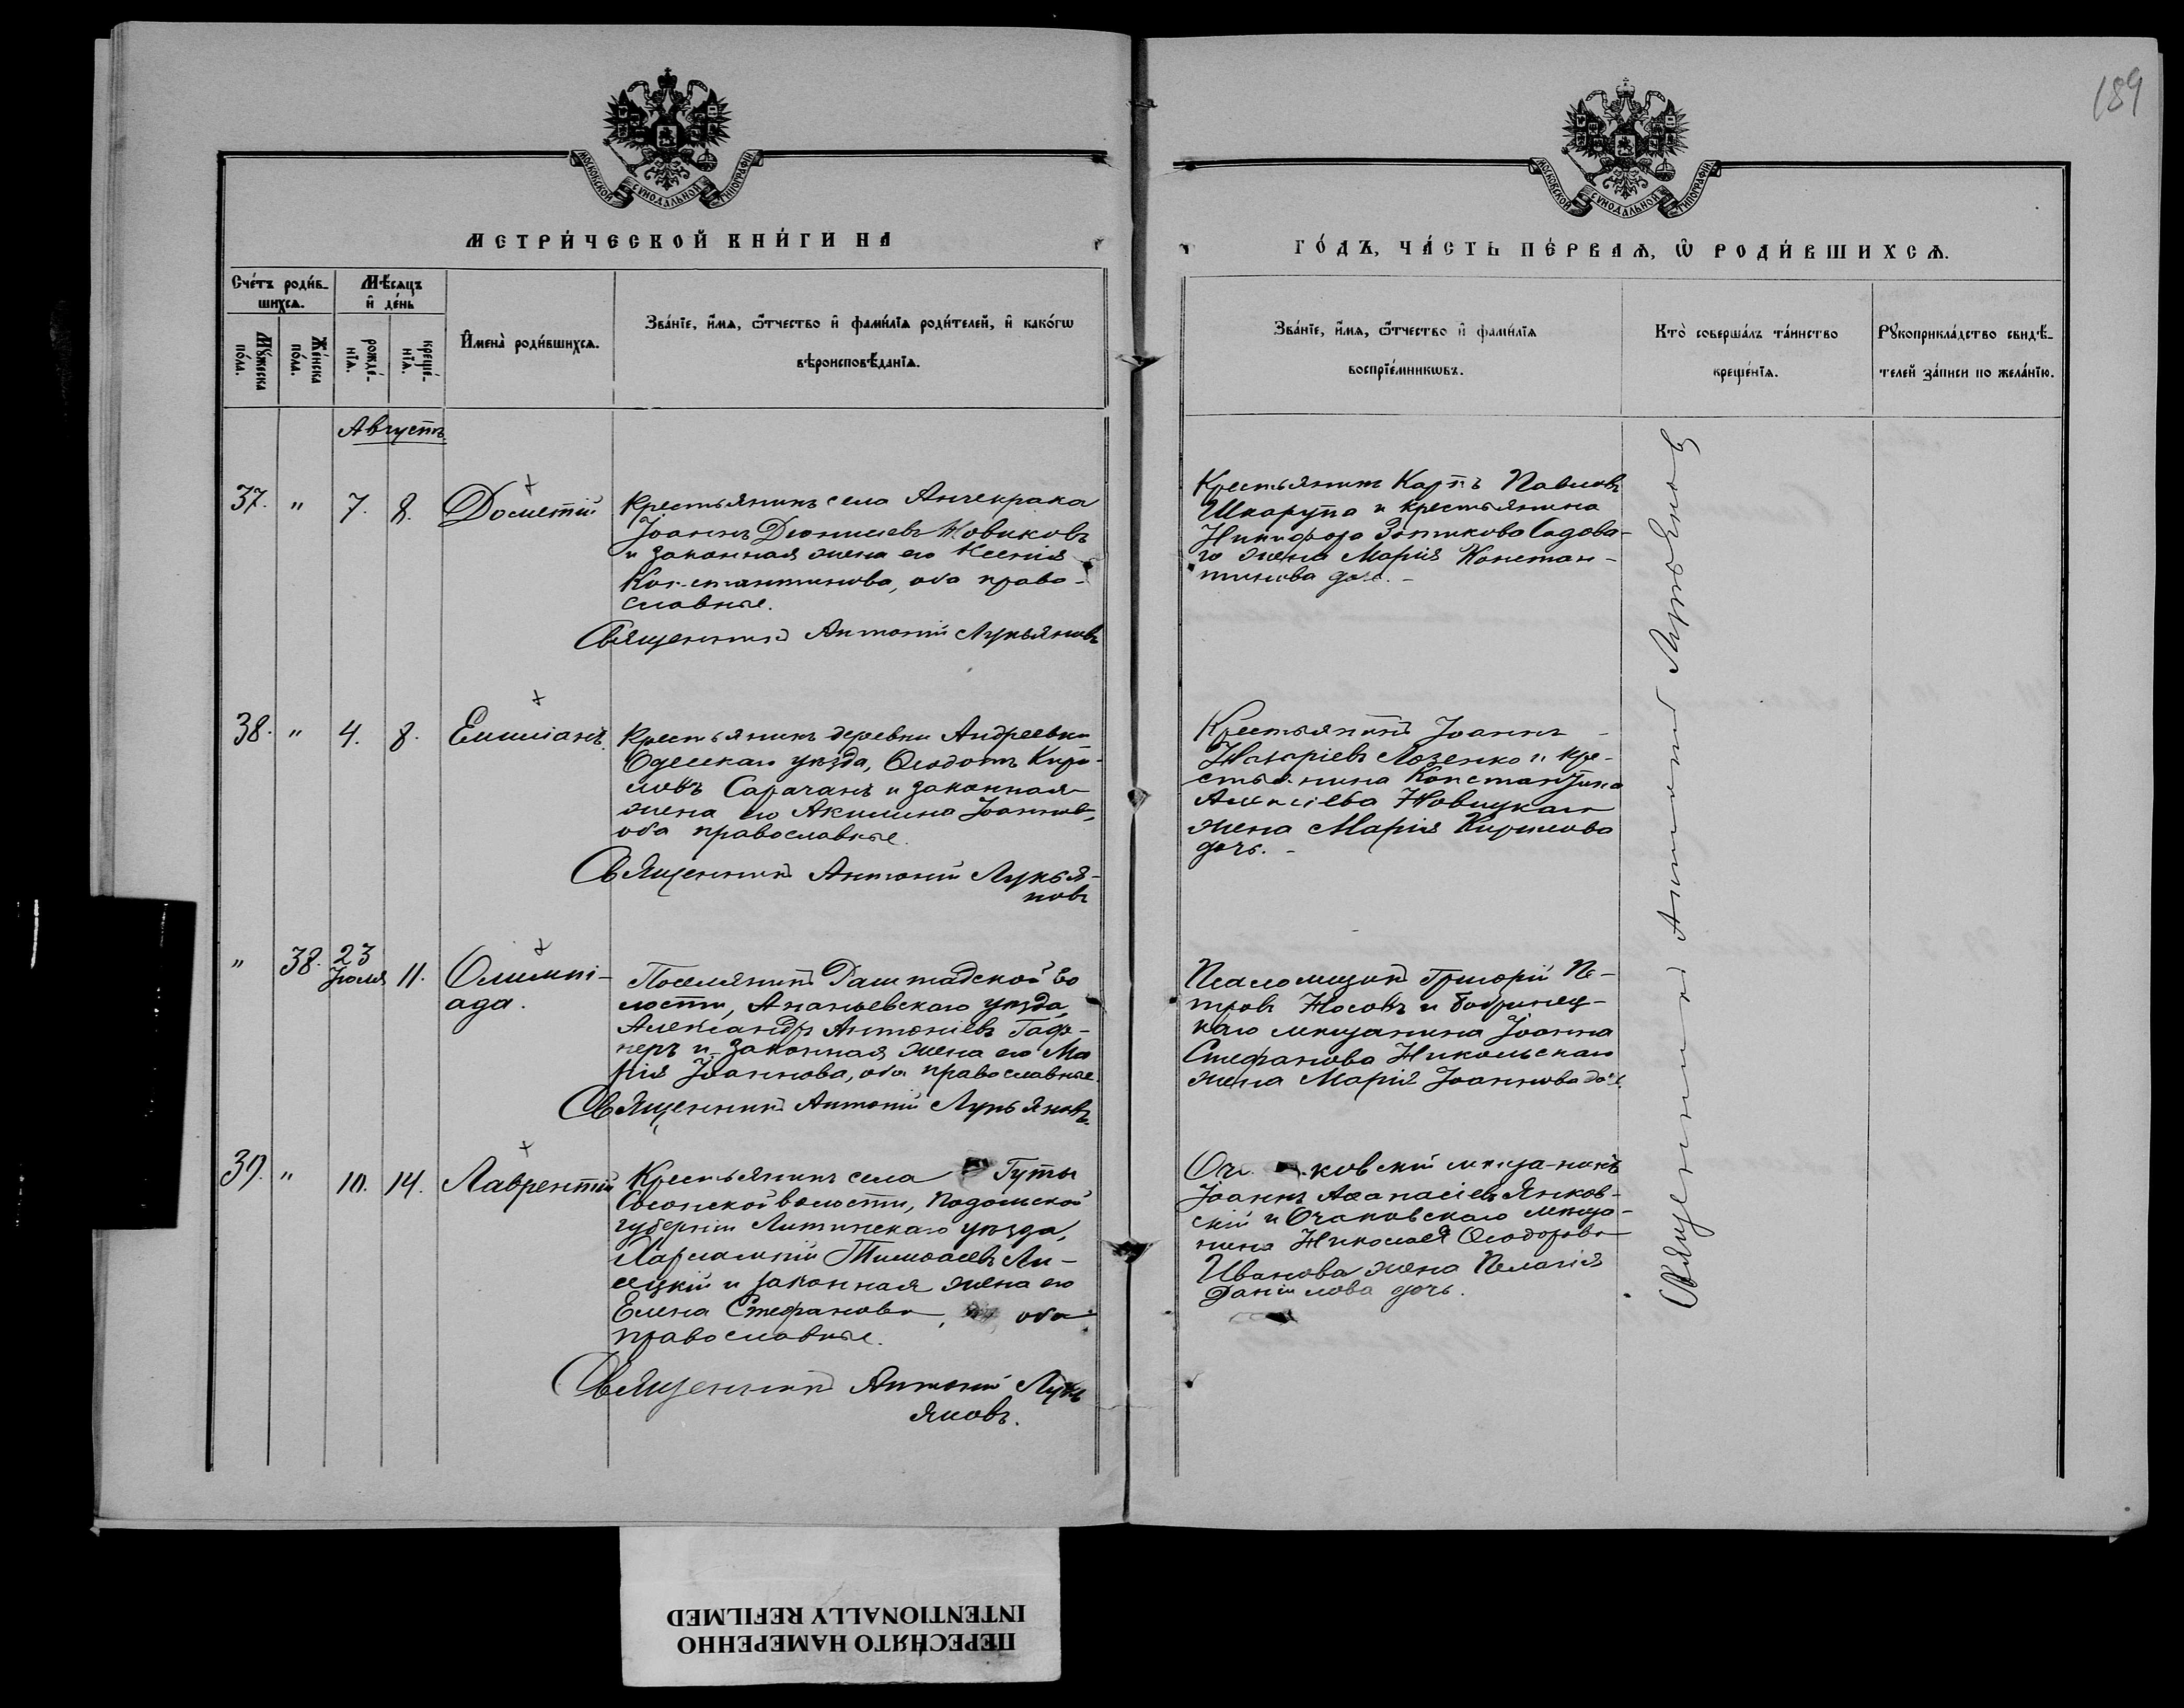 189
МОСКОВСКОЙ СѴНОДАЛЬНОЙ ТИПОГРАФІИ
МОСКОВСКОЙ СѴНОДАЛЬНОЙ ТИПОГРАФІИ
МЕТРИ́ЧЕСКОЙ КНИ́ГИ НА
ГО́ДЪ, ЧА́СТЬ ПЕ́РВАѦ, Ѡ҆ РОДИ́ВШИХСѦ.
Сче́тъ роди́в-
шихсѧ.
Мꙋ́жеска
по́ла.
Же́нска
по́ла.
Мѣ́сѧцъ
и҆ де́нь
рожде́-
нїѧ.
креще́-
нїѧ.
И҆мена̀ роди́вшихсѧ.
Зва́нїе, и҆́мѧ, ѻ҆́тчество и҆ фами́лїѧ роди́телей, и҆ како́гѡ
вѣроисповѣ́данїѧ.
Зва́нїе, и҆́мѧ, ѻ҆́тчество и҆ фами́лїѧ
воспрїе́мникѡвъ.
Кто̀ соверша́лъ та́инство
креще́нїѧ.
Рꙋкоприкла́дство свидѣ́-
телей за́писи по жела́нїю.
Августъ.
37. " 7. 8. Дометій
Крестьянинъ села Анчекрака
Іоаннъ Діонисіевъ Новиковъ
и законная жена его Ксенія
Константинова, оба право-
славные.
Священникъ Антоній Лукьяновъ
Крестьянинъ Карпъ Павловъ
Шкарупа и крестьянина
Никифора Зотикова Садова-
го жена Марія Констан-
тинова дочь. -
38. " 4. 8. Емиліанъ.
Крестьянинъ деревни Андреевки
Одесскаго уѣзда, Ѳеодотъ Кири-
ловъ Сарачанъ и законная
жена его Акилина Іоаннова,
оба православные.
Священникъ Антоній Лукья-
новъ
Крестьянинъ Іоаннъ
Назаріевъ Лозенко и кре-
стьянина Константина
Алексіева Новицкаго
жена Марія Кирилова
дочь. -
" 38. 23 Іюля 11. Олимпі-
ада.
Поселянинъ Раштадской во
лости, Ананьевскаго уѣзда,
Александръ Антоніевъ Гаф-
неръ и законная жена его Ма
рія Іоаннова, оба православные.
Священникъ Антоній Лукьяновъ.
Псаломщикъ Григорій Пе-
тровъ Носовъ и Бобринец-
каго мѣщанина Іоанна
Стефанова Никольскаго
жена Марія Іоаннова дочь
39. " 10. 14. Лаврентій
Крестьянинъ села Гуты
волости, Подольской
губерніи Литинскаго уѣзда,
Харлампій Тимоѳеевъ Ли-
сецкій и законная жена его
Елена Стефанова, оба
православные.
Священникъ Антоній Лукь
яновъ.
ковскій мѣщанинъ
Іоаннъ Аѳанасіевъ Янков-
скій и Очаковскаго мѣща-
нина Николая Ѳеодорова
Иванова жена Пелагія
Даніилова дочь.
Священникъ Антоній Лукьяновъ
ПЕРЕСНЯТО НАМЕРЕННО
INTENTIONALLY REFILMED